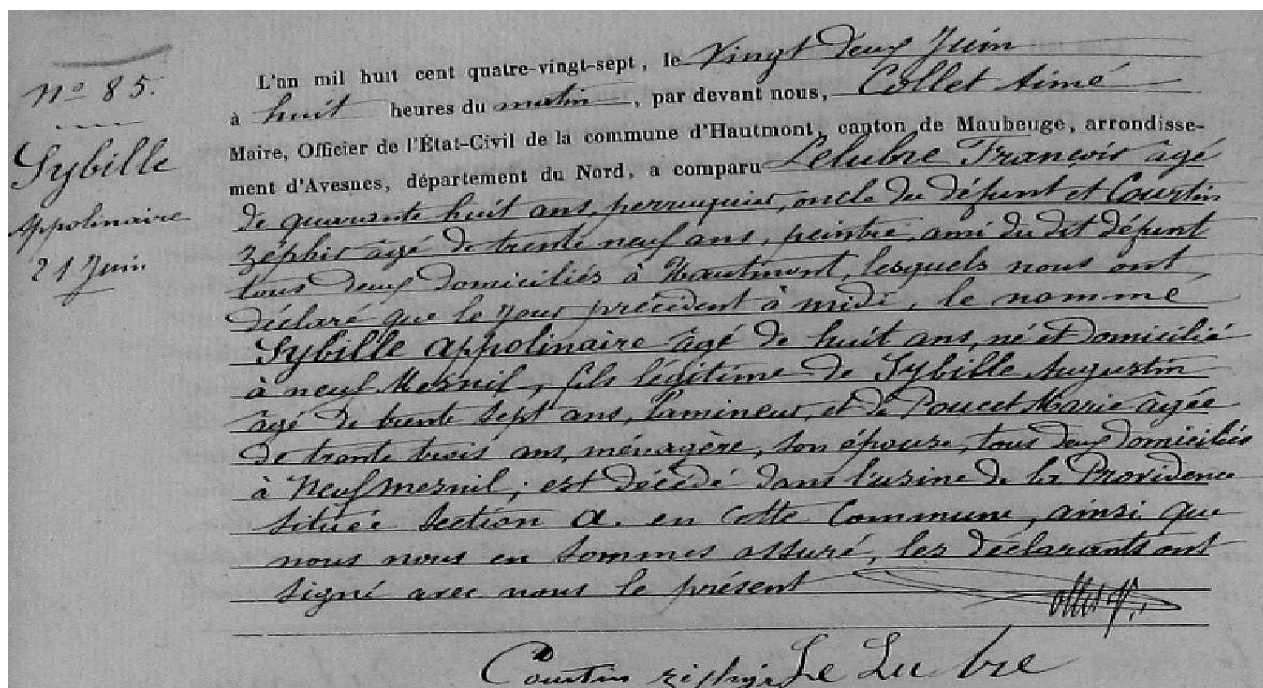 N° 85.
Sybille
Appolinaire
21 Juin
L'an mil huit cent quatre-vingt-sept, le Vingt deux Juin
à huit heures du matin, par devant nous, Collet Aimé
Maire, Officier de l'État-Civil de la commune d'Hautmont, canton de Maubeuge, arrondisse-
ment d'Avesnes, département du Nord, a comparu Lelubre François âgé
de quarante huit ans, perruquier, oncle du défunt et Courtin
Zéphir âgé de trente neuf ans, peintre, ami du dit défunt
tous deux domiciliés à Hautmont, lesquels nous ont
déclaré que le jour précédent à midi, le nommé
Sybille Appolinaire âgé de huit ans, né et domicilié
à neuf Mesnil, fils légitime de Sybille Augustin
âgé de trente sept ans, lamineur, et de Poucet Marie âgée
de trente trois ans, ménagère, son épouse, tous deux domiciliés
à Neuf mesnil; est décédé dans l'usine de la Providence
située section a. en cette commune, ainsi que
nous nous en sommes assuré, les déclarants ont
signé avec nous le présent
Courtin zéphir Le Lubre